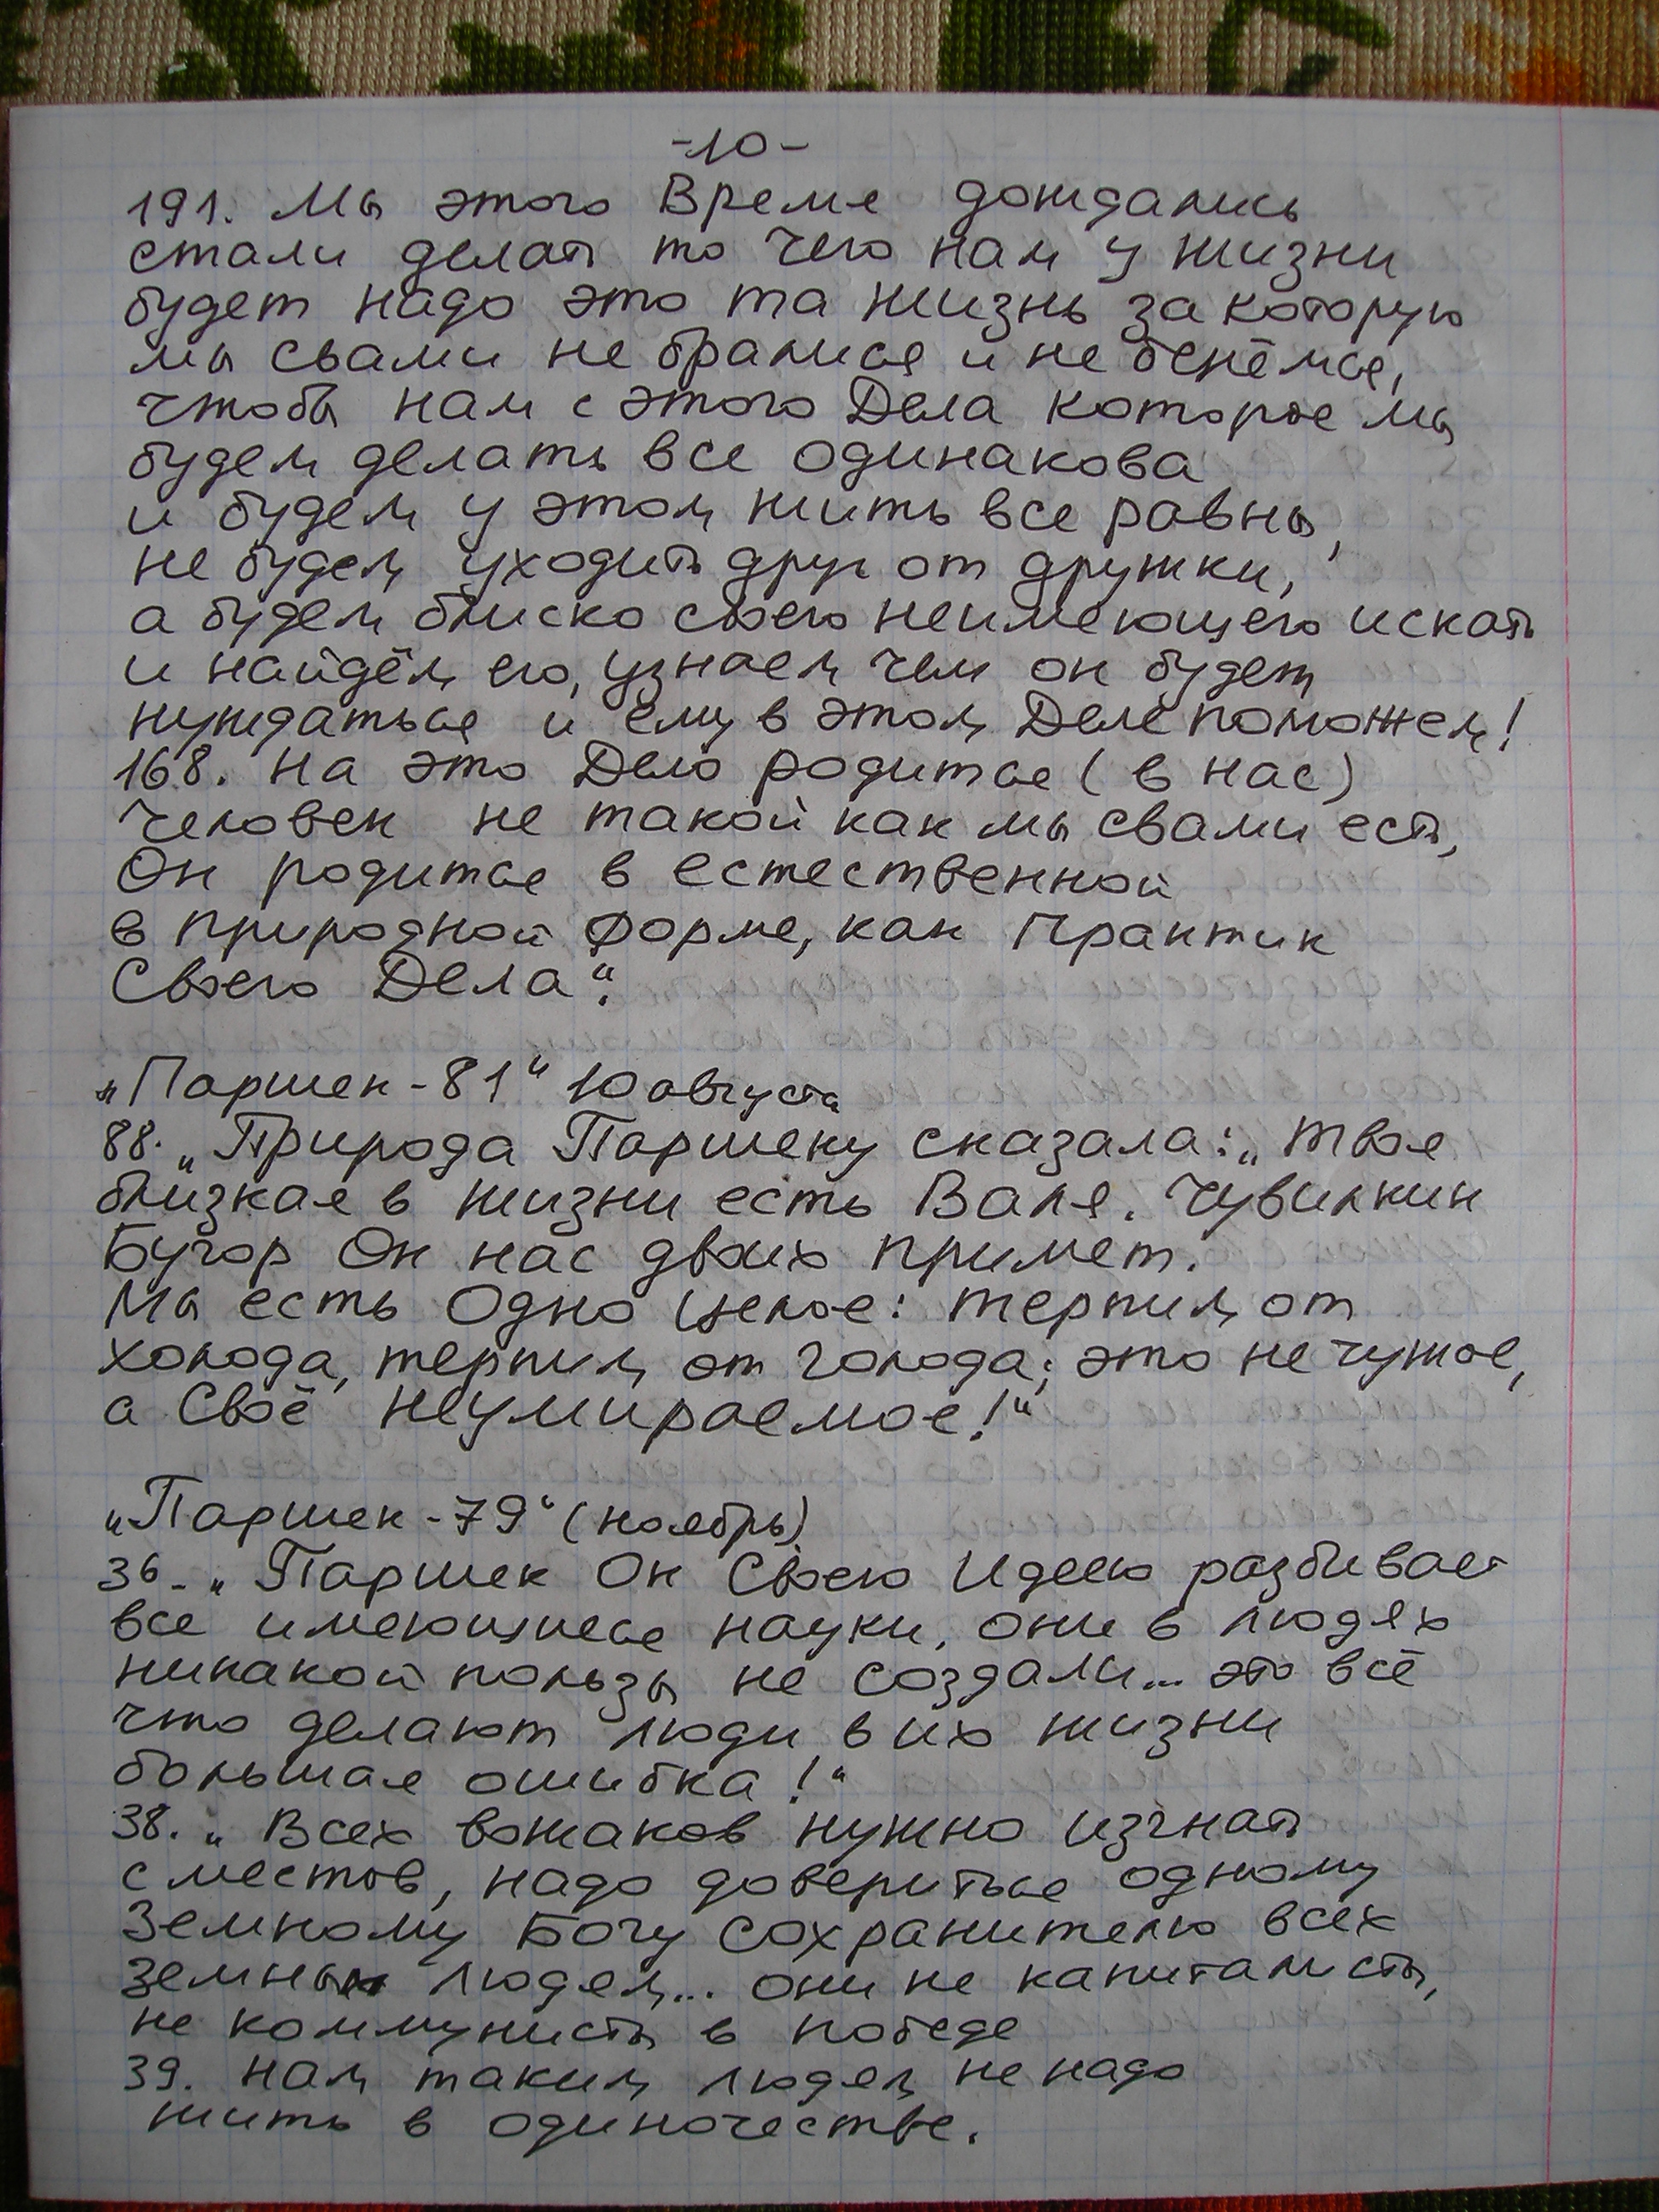 -10-
191. Мы этого Время дождались
стали делать то чего нам у жизни
будет надо это та жизнь за которую
мы свами не брались и не берёмся,
чтобы нам с этого Дела которое мы
будем делать все одинакова
и будем у этом жить все равны,
не будем уходить друг от дружки,
а будемблиско своего неимеющего искать
и найдём его, узнаем чем он будет
нуждаться и ему в этом Деле поможем!
168. На это Дело родится (в нас)
Человек не такой как мы свами есть,
Он родится в естественной
в природной форме, как Практик
Своего Дела".
„Паршек-81" 10 августа
88. „Природа Паршеку сказала: „твоя
близкая в жизни есть Валя. Чувилкин
Бугор Он нас двоих примет.
Мы есть Одно целое: терпим от
холода, терпим от голода; это не чужое,
а Своё неумираемое!"
„Паршек-79" (ноябрь)
36. „Паршек Он Своею Идеею разбивает
все имеющиеся науки, они в людях
никакой пользы не создали... это всё
что делают люди в их жизни
большая ошибка!"
38. „Всех вожаков нужно изгнать
с местов, надо довериться одному
Земному Богу Сохранителю всех
земных людей... они не капиталисты,
не коммунисты в победе
39. Нам таким людям не надо
жить в одиночестве.